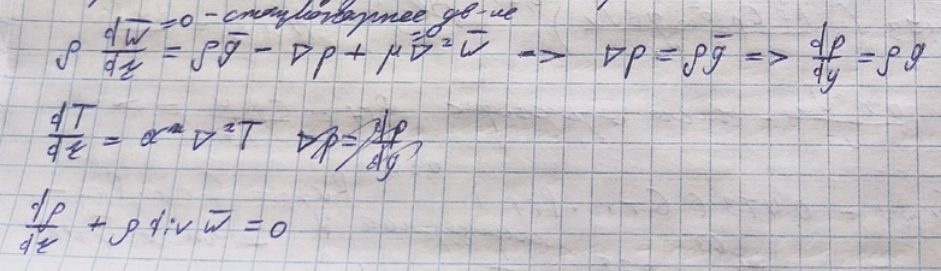 =0 - стационарное дв-ие
ρ dw̄/dτ = ρḡ - ∇p + μ∇²w̄ => ∇p = ρḡ => dp/dy = ρg
=0
dT/dτ = a ∇²T ∇p = dp/dy
dρ/dτ + ρ div w̄ = 0